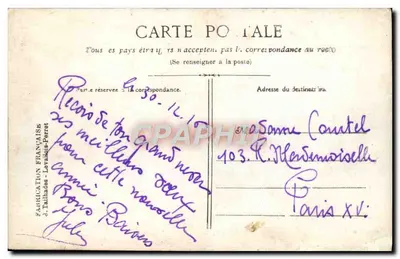 CARTE POSTALE
Tous les pays étrangers n'acceptent pas la correspondance au recto
(Se renseigner à la poste)
Partie réservée à la correspondance.
Adresse du destinataire.
FABRICATION FRANÇAISE
J. Tailhades - Levallois-Perret
le 30-12-15
Reçois de ton grand
ses meilleurs vœux
pour cette nouvelle
année. Bons Baisers
Jules
Madame Courtel
103. R. Mademoiselle
Paris XV.